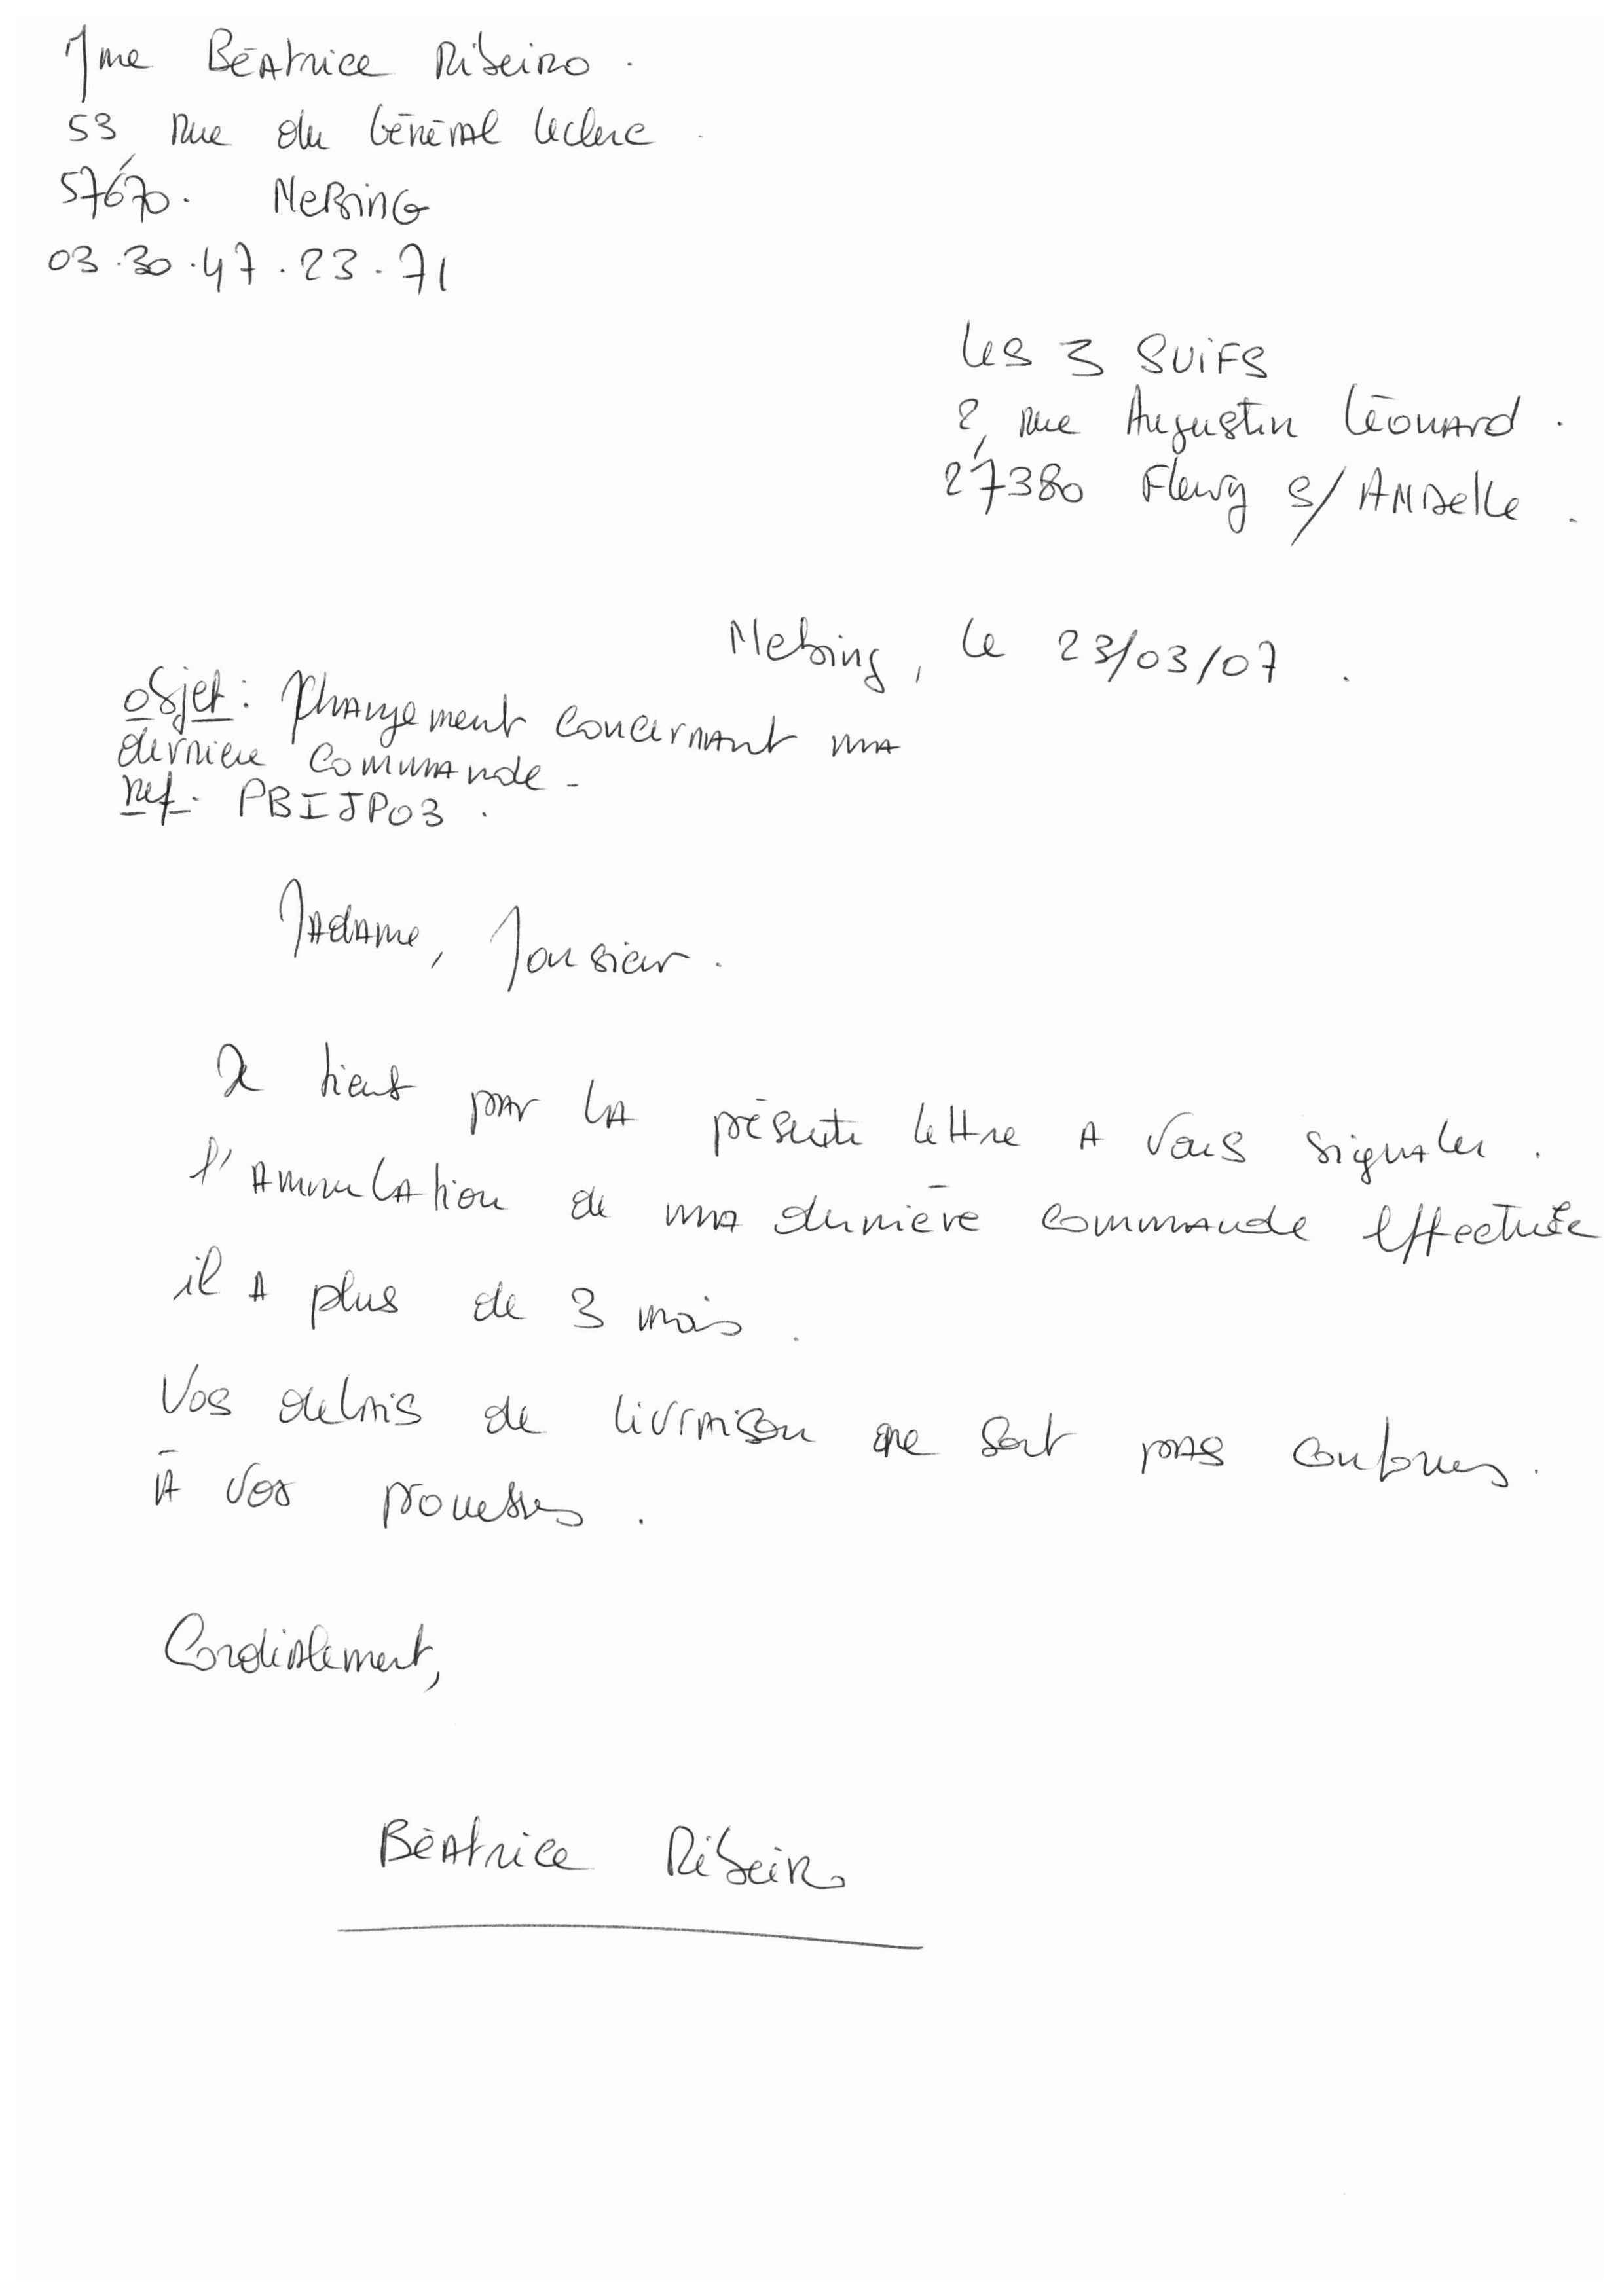 Mme Béatrice Ribeiro.
53, rue du Général Leclerc.
57670. Nebing
03.30.47.23.71
Les 3 SUIFS
2, rue Augustin Léonard.
27380 Fleury s/ Andelle.
Nebing, le 23/03/07.
Objet: Changement concernant ma
dernière commande.
Ref. PBIJP03.
Madame, Monsieur.
Je tient par la présente lettre a vous signaler.
l'annulation de ma dernière commande effectuée
il a plus de 3 mois.
Vos delais de livraison ne sont pas conformes.
à vos promesses.
Cordialement,
Béatrice Ribeiro